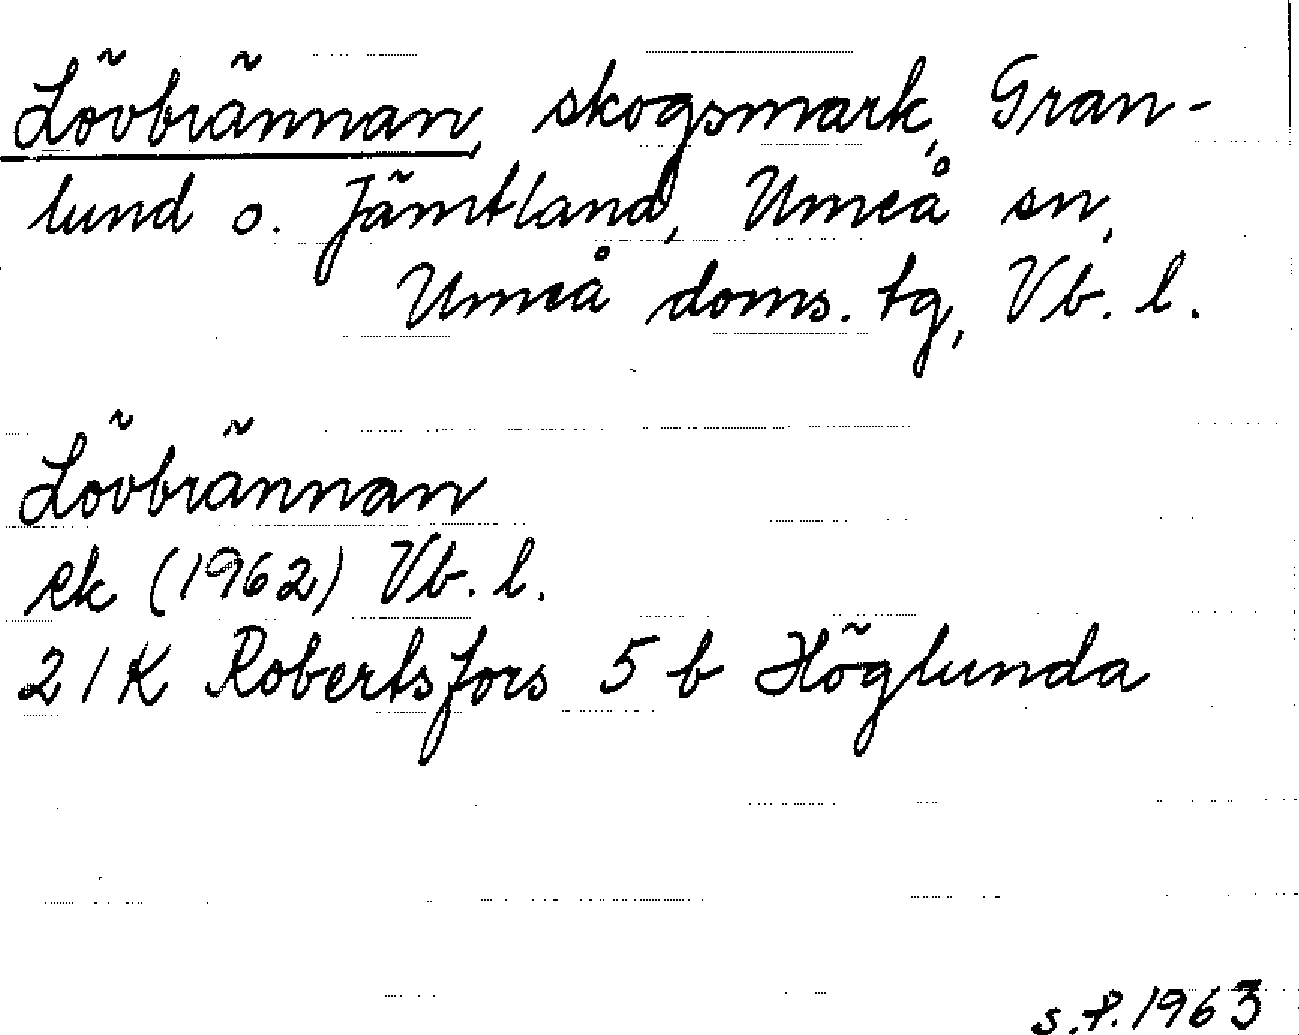 Lövbrännan, skogsmark, Gran-
lund o. Jämtland, Umeå sn,
Umeå doms. tg, Vb. l.
Lövbrännan
ek (1962) Vb. l.
21K Robertsfors 5 b Höglunda
s.f. 1963